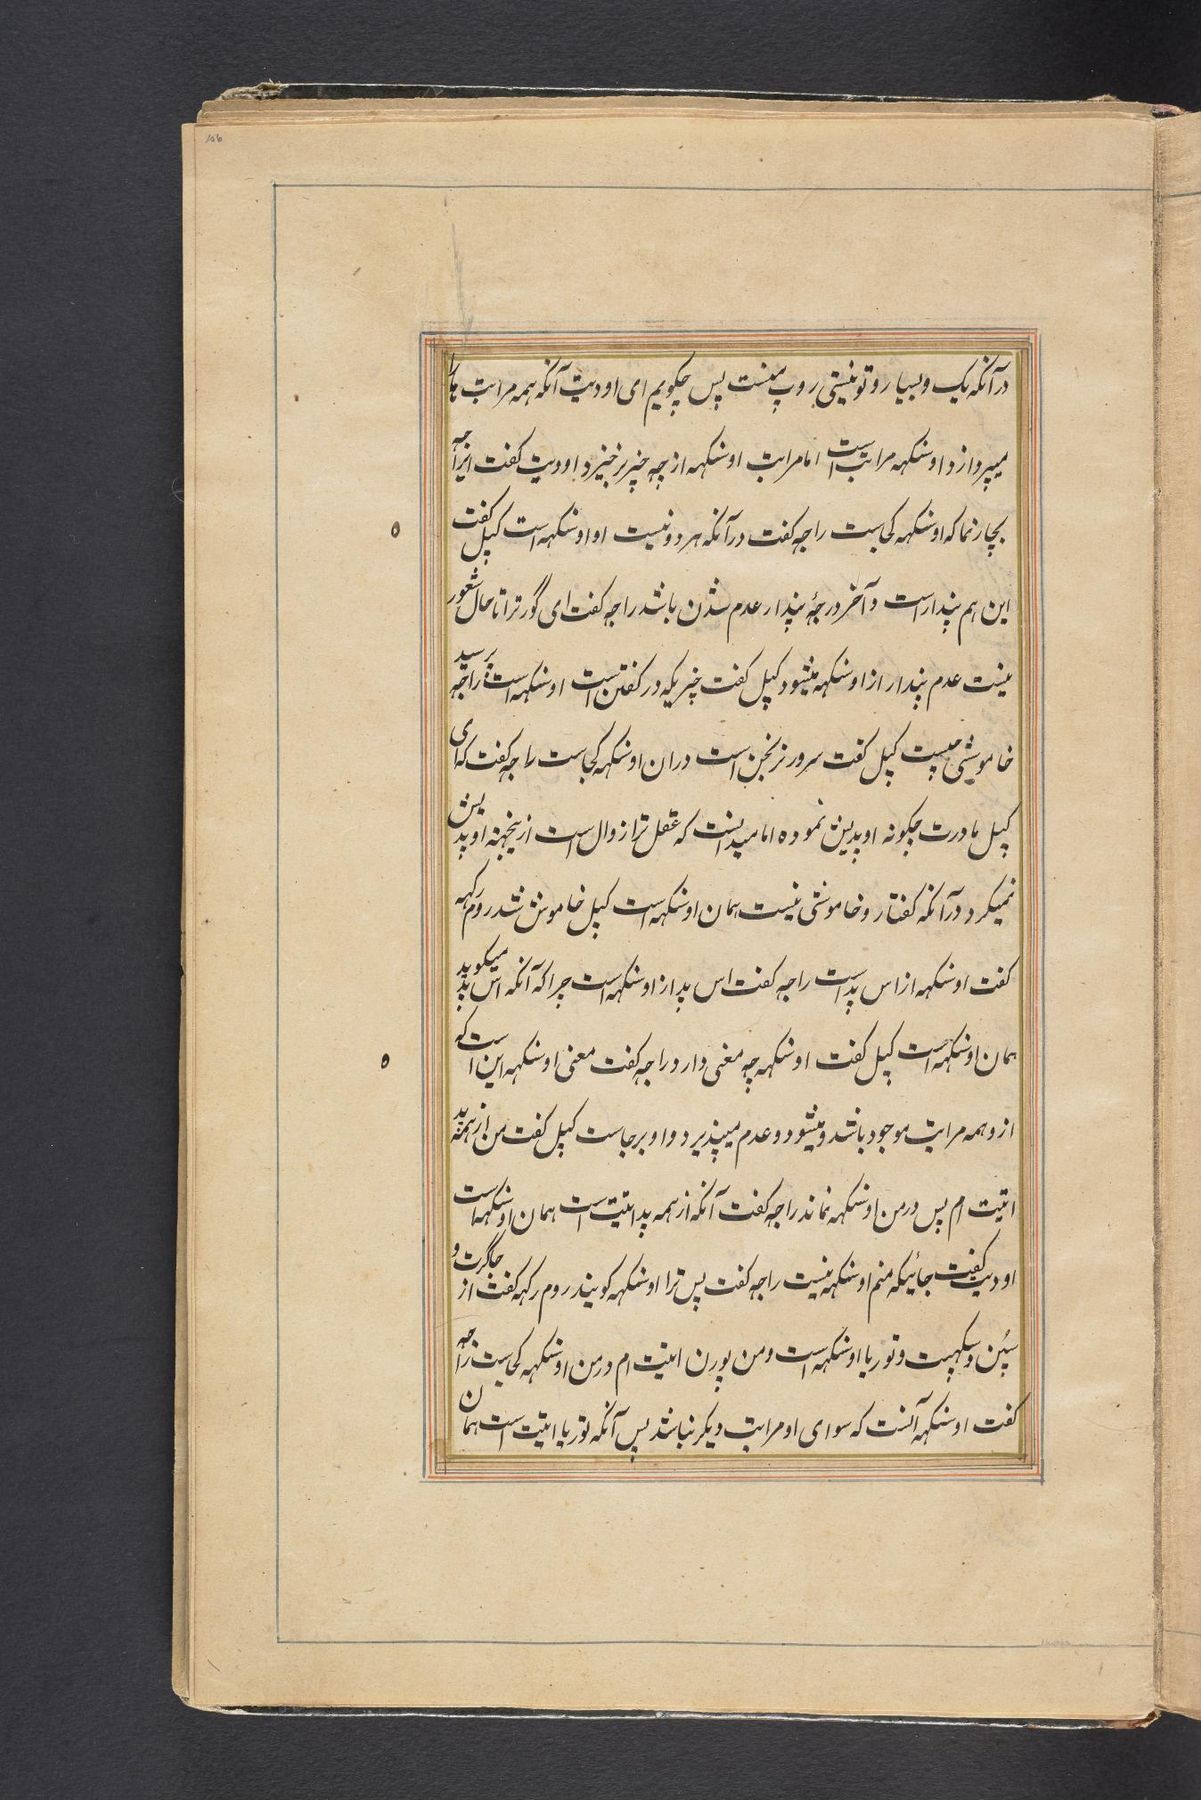 106
در آنکه یک و بسیار و تو نیستی روپ نیست پس چگویم ای اودیت آنکه همه مراتب را
میپردازد اوشکهه مراتب است اما مراتب اوشکهه از چه چیز برخیزد اودیت گفت ای راجه
بچار نما که اوشکهه کجاست راجه گفت در آنکه هر دو نیست او اوشکهه است کپل گفت
این هم پندار است و آخر درجهٔ پندار عدم شدن باشد راجه گفت ای گور ترا تا حال شعور
نیست عدم پندار از اوشکهه میشود کپل گفت چیزیکه در گفتن است اوشکهه است راجه پرسید
خاموشی چیست کپل گفت سرور نرنجن است در ان اوشکهه کجاست راجه گفت که ای
کپل مادرت چگونه اوپدیش نموده اما میدانست که عقل ترا زوال است ازینجهته اوپدیش
نمیکرد در آنکه گفتار و خاموشی نیست همان اوشکهه است کپل خاموش شد روم رکهه
گفت اوشکهه از اس پد است راجه گفت اس پد از اوشکهه است چرا که آنکه اس پد میگوید
همان اوشکهه است کپل گفت اوشکهه چه معنی دارد راجه گفت معنی اوشکهه این است که
ازو همه مراتب موجود باشد و میشود و عدم میپذیرد و او برجاست کپل گفت من از همه پد
اتیت ام پس در من اوشکهه نماند راجه گفت آنکه از همه پد اتیت است همان اوشکهه است
اودیت گفت جائیکه منم اوشکهه نیست راجه گفت پس ترا اوشکهه گویند روم رکهه گفت از جاگرت و
سپن و سکهپت و توریا اوشکهه است و من پورن اتیت ام در من اوشکهه کجاست راجه
گفت اوشکهه آنست که سوای او مراتب دیگر نباشد پس آنکه توریا اتیت است همان